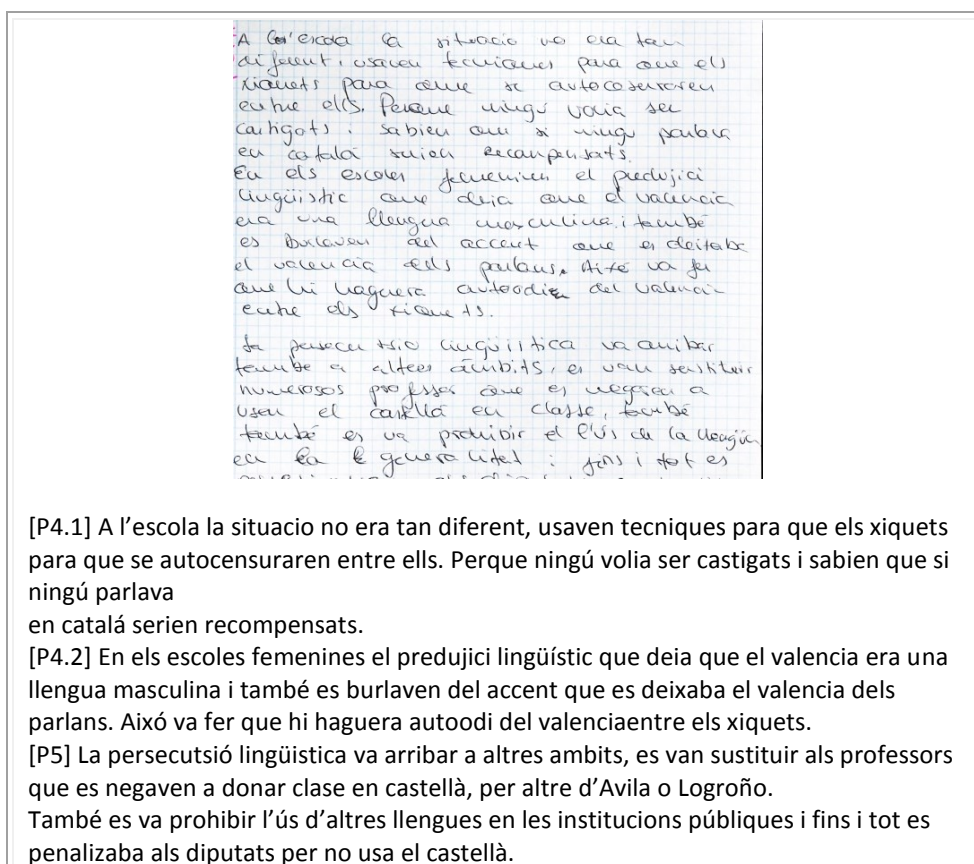 A l'escola la situacio no era tan
diferent, usaven tecniques para que els
xiquets para que se autocensuraren
entre ells. Perque ningú volia ser
castigats i sabien que si ningu parlava
en catalá serien recompensats.
En els escoles femenines el predujici
lingüistic que deia que el valencia
era una llengua masculina i també
es burlaven del accent que es deixaba
el valencia dels parlans. Aixó va fer
que hi haguera autoodi del valencia
entre els xiquets.
La persecutsió lingüistica va arribar
també a altres ámbits, es van sustituir
numerosos professor que es negaven a
usar el castellà en classe, també
també es va prohibir el l'ús de la llengüa
en la generalitat i fins i tot es
[P4.1] A l’escola la situacio no era tan diferent, usaven tecniques para que els xiquets
para que se autocensuraren entre ells. Perque ningú volia ser castigats i sabien que si
ningú parlava
en catalá serien recompensats.
[P4.2] En els escoles femenines el predujici lingüístic que deia que el valencia era una
llengua masculina i també es burlaven del accent que es deixaba el valencia dels
parlans. Aixó va fer que hi haguera autoodi del valenciaentre els xiquets.
[P5] La persecutsió lingüistica va arribar a altres ambits, es van sustituir als professors
que es negaven a donar clase en castellà, per altre d’Avila o Logroño.
També es va prohibir l’ús d’altres llengues en les institucions públiques i fins i tot es
penalizaba als diputats per no usa el castellà.